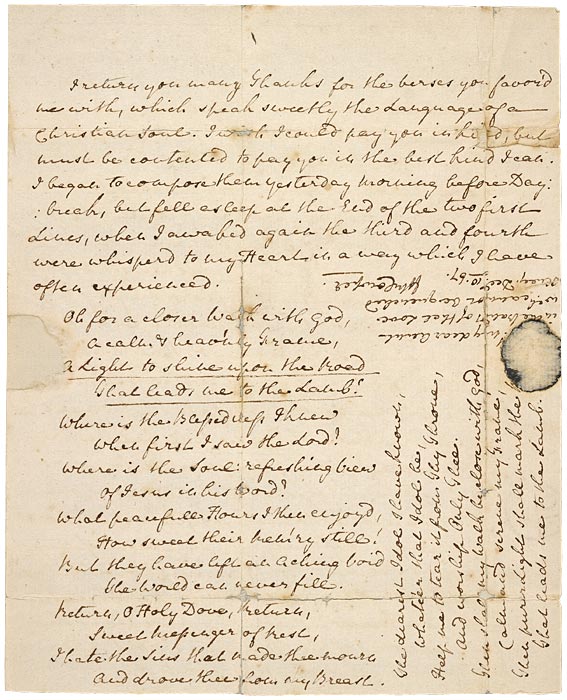 I return you many Thanks for the verses you favor'd
me with, which speak sweetly the Language of a
Christian Soul. I wish I could pay you in kind, but
must be contented to pay you in the best kind I can.
I began to compose them yesterday Morning before Day:
:break, but fell asleep at the End of the two first
Lines, when I awaked again the third and fourth
were whisper'd to my Heart in a way which I have
often experienced.
Oh for a closer Walk with God,
A calm & heav'nly Frame,
A Light to shine upon the Road
That leads me to the Lamb!
Where is the Blessedness I knew
When first I saw the Lord?
Where is the Soul:refreshing View
Of Jesus in his Word?
What peacefull Hours I then enjoy'd,
How sweet their Mem'ry still!
But they have left an Aching Void
The World can never fill.
Return, O Holy Dove, Return,
Sweet Messenger of Rest,
I hate the Sins that made thee mourn
And drove thee from my Breast.
The dearest Idol I have known,
Whate'er that Idol be,
Help me to tear it from Thy Throne,
And worship Only Thee.
Then shall my Walk be close with God,
Calm and serene my Frame,
Then purer Light shall mark the Road
That leads me to the Lamb.
my dear Aunt
in the bonds of that Love
which cannot be quenched
Wm Cowper
Olney Dec. 10. 67.